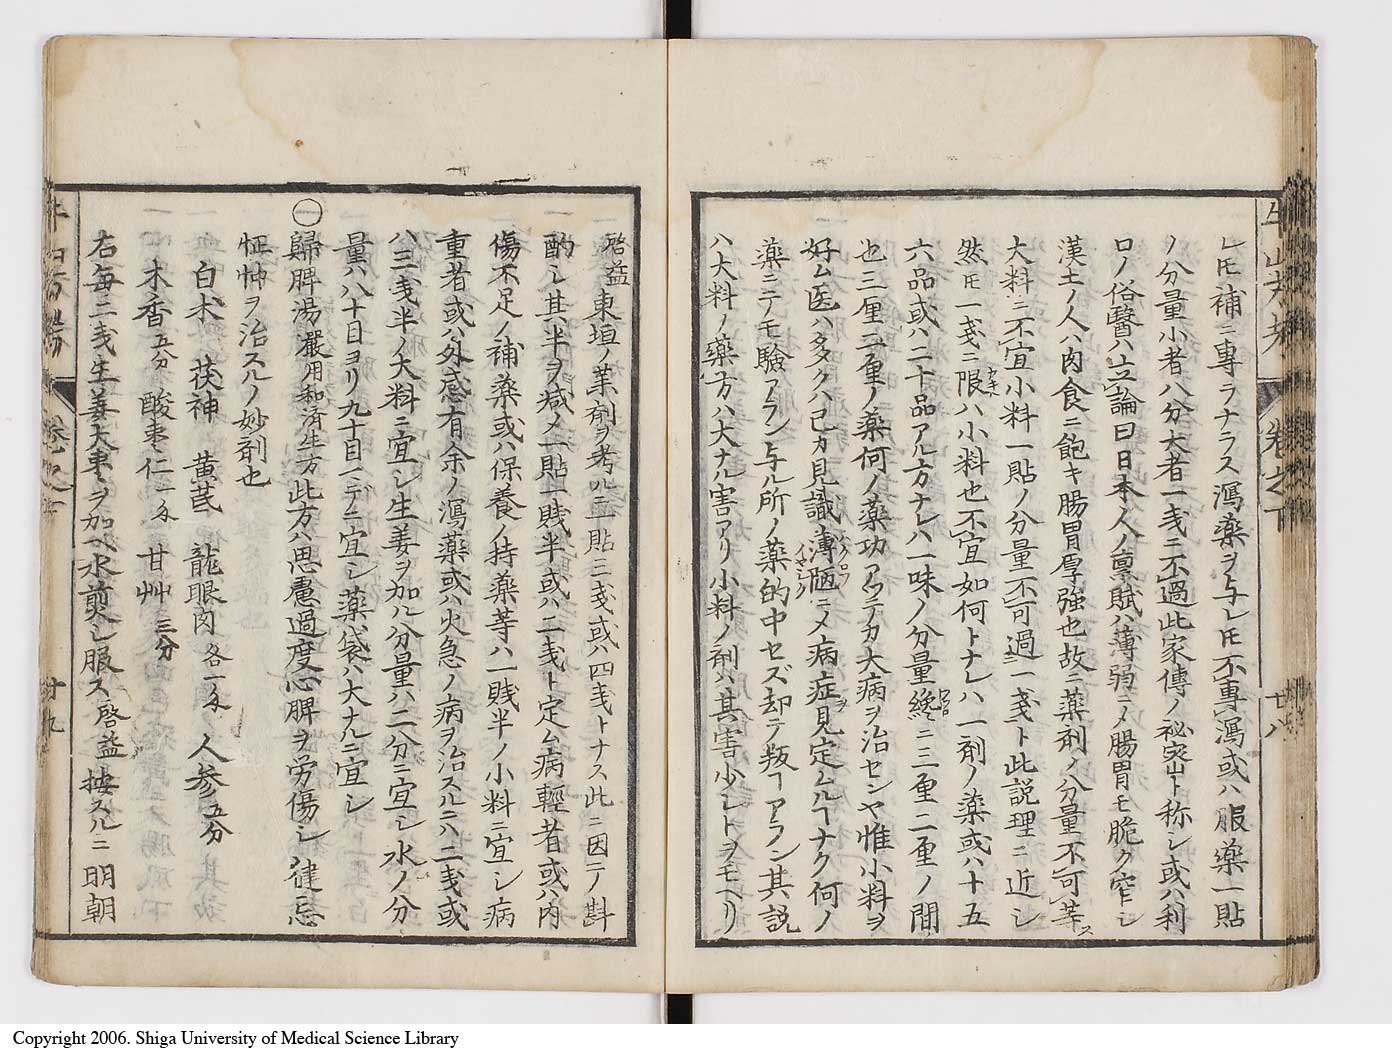 レ𪜈補ニ専ラナラス瀉薬ヲ与レ𪜈不専瀉或ハ服薬一貼
ノ分量小者八分大者一戔ニ不過此家傳ノ秘突ト称シ或ハ利
口ノ俗醫ハ立論曰日本人ノ禀賦ハ薄弱ニメ腸胃モ脆ク窄シ
漢土ノ人ハ肉食ニ飽キ腸胃厚強也故ニ薬剤ノ分量不可莘ス
大料ニ不宜小料一貼ノ分量不可過一戔ト此説理ニ近シ
然𪜈一戔ニ限ハ小料也不宜如何トナレハ一剤ノ薬或ハ十五
六品或ハ二十品アル方ナレハ一味ノ分量纔ニ三厘二厘ノ間
也三厘二厘ノ薬何ノ薬功アツテカ大病ヲ治センヤ惟小料ヲ
好ム医ハ多クハ己カ見識薄陋ニメ病症見定ムルヿナク何ノ
薬ニテモ驗アラン与ル所ノ薬的中セズ却テ叛ヿアラン其説
ハ大料ノ藥方ハ大ナル害アリ小料ノ剤ハ其害少レトヲモヘリ
牛山方考
卷之下
廿八
啓益東垣ノ薬剤ヲ考ルニ一貼三戔或ハ四戔トナス此ニ因テ斟
酌シ其半ヲ減メ一貼一賎半或ハ二戔ト定ム病輕者或ハ内
傷不足ノ補薬或ハ保養ノ持薬等ハ一賎半ノ小料ニ宜シ病
重者或ハ外感有余ノ瀉薬或ハ火急ノ病ヲ治スルニハ二戔或
ハ三戔半ノ大料ニ宜シ生姜ヲ加ル分量ハ二分ニ宜シ水ノ分
量ハ八十目ヨリ九十目マデニ宜シ薬袋ハ大ナルニ宜シ
㊀歸脾湯嚴用和済生方此方ハ思慮過度心脾ヲ労傷シ健忘
怔忡ヲ治スルノ妙剤也
白朮 茯神 黄茋 龍眼肉各一匁 人参五分
木香五分 酸枣仁一匁 甘艸三分
右毎二戔生姜大枣ヲ加ヘ水煎シ服ス啓益按スルニ明朝
廿九